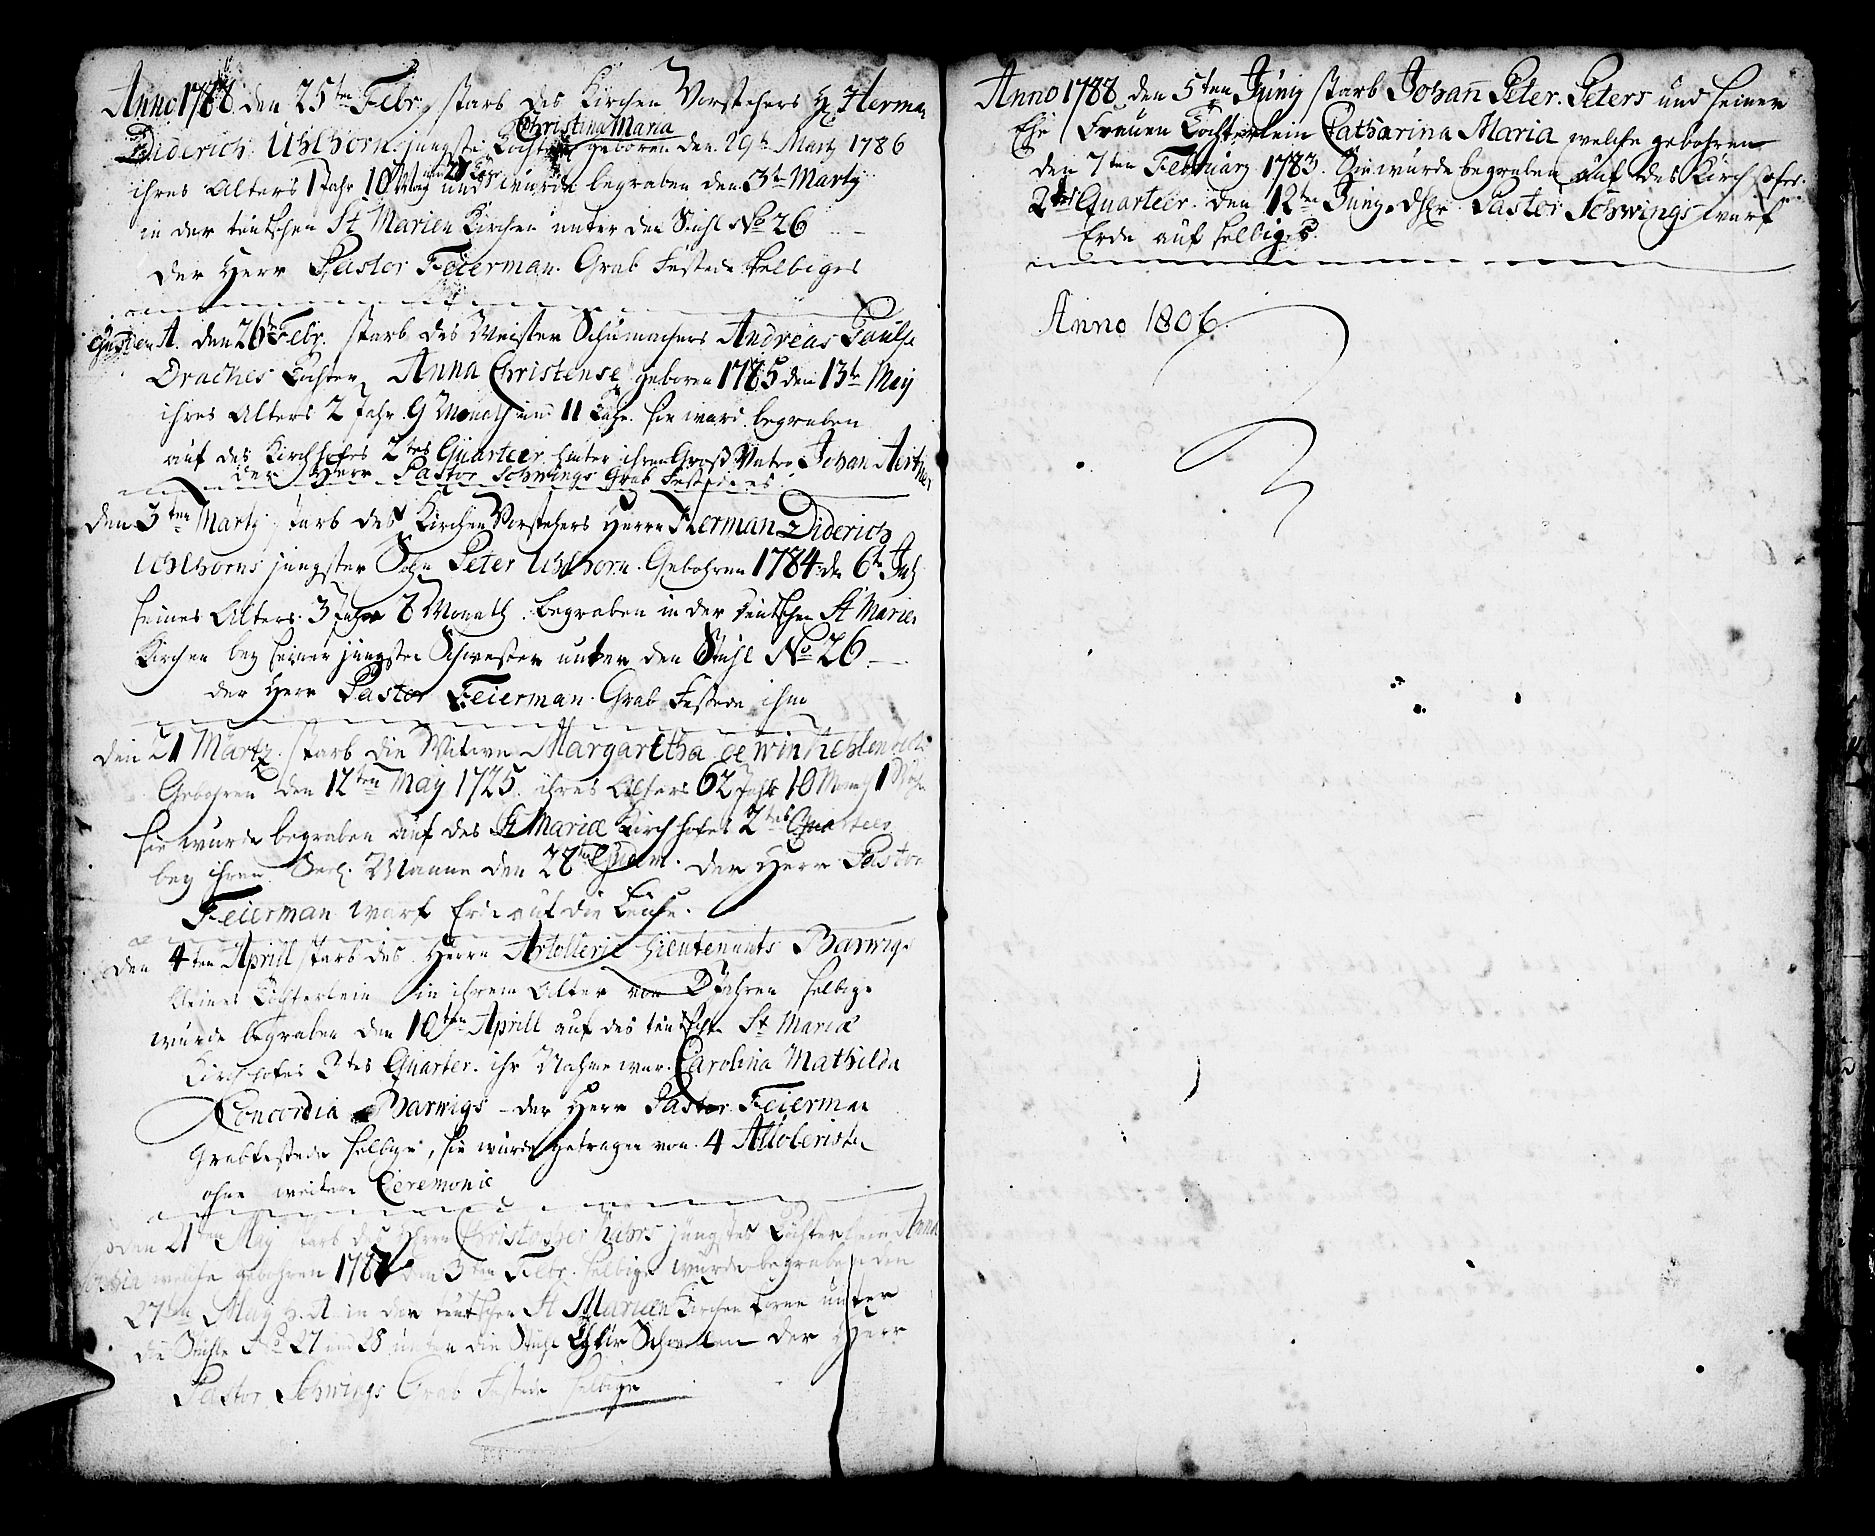 Anno 1788 den 25ten Febr. starb des Kirchen Vorstehers H. Herman
Christina Maria
Diderich Uhlhorn jüngste Tochter geboren den 29t Martz 1786
ihres Alters 1 Jahr 10 und wurde begraben den 3t Marty
in der teutschen St Marien Kirchen unter den Stuhl No 26
Der Herr Pastor Feierman Grab Festede selbiges
den 26t Febr. starb des Meister Schumachers Andreas Paulse
Draches Tochter Anna Christense geboren 1785 den 13t May
ihres Alters 2 Jahr 9 Monath und 11 Tage. sie ward begraben
auf des Kirchhofes 2tes Quarteer hinter ihren Groß Vater Johan
der Herr Pastor Schwings Grab Festede es
den 3ten Marty starb des Kirchen Vorstehers Herrn Herman Diderich
Uhlhorns jungster Sohn Peter Uhlhorn. Gebohren 1784 den 6t
seines Alters 3 Jahr 8 Monath. begraben in der teutschen St Marien
Kirchen bey seiner jüngsten Schwester unter den Stuhl No 26
der Herr Pastor Feierman Grab Festede ihm
den 21 Martz starb die Witwe Margaretha
Gebohren den 12ten May 1725. ihres Alters 62 Jahr 10 Monath 1
sie wurde begraben auf des St Mariæ Kirchhofes 2tes Quarteer
bey ihren Seel. Manne den 28t der Herr Pastor
Feierman warf Erde auf die Leiche.
den 4ten Aprill starb des Herrn Artollerie Lieutenants Barwigs
kleines Töchterlein in ihrem Alter von Jahren selbige
wurde begraben den 10ten Aprill auf des teutschen St Mariæ
Kirchhofes 2tes Quarter. ihr Nahme war Carolina Mathilda
Concordia Barwigs - der Herr Pastor Feierman
Grabfestede selbige, sie wurde getragen von 4
ohne weitere Ceremonie
den 21ten May starb des Herrn Christopher jüngstes Töchterlein Anna
welche gebohren 1787 den 3ten Febr. selbige wurde begraben den
27ten May h. A. in der teutschen St Marien Kirchen unter
die Stühle No 27 und 28 unter die Stuhl der Herr
Pastor Schwings Grab Festede selbige
Anno 1788 den 5ten Juny starb Johan Peter Peters und seiner
Ehe Frauen Töchterlein Catharina Maria welche gebohren
den 7ten February 1783. Sie wurde begraben auf des Kirchhofes
2tes Quarteer den 12ten Juny. Pastor Schwings warf
Erde auf selbiges
Anno 1806.